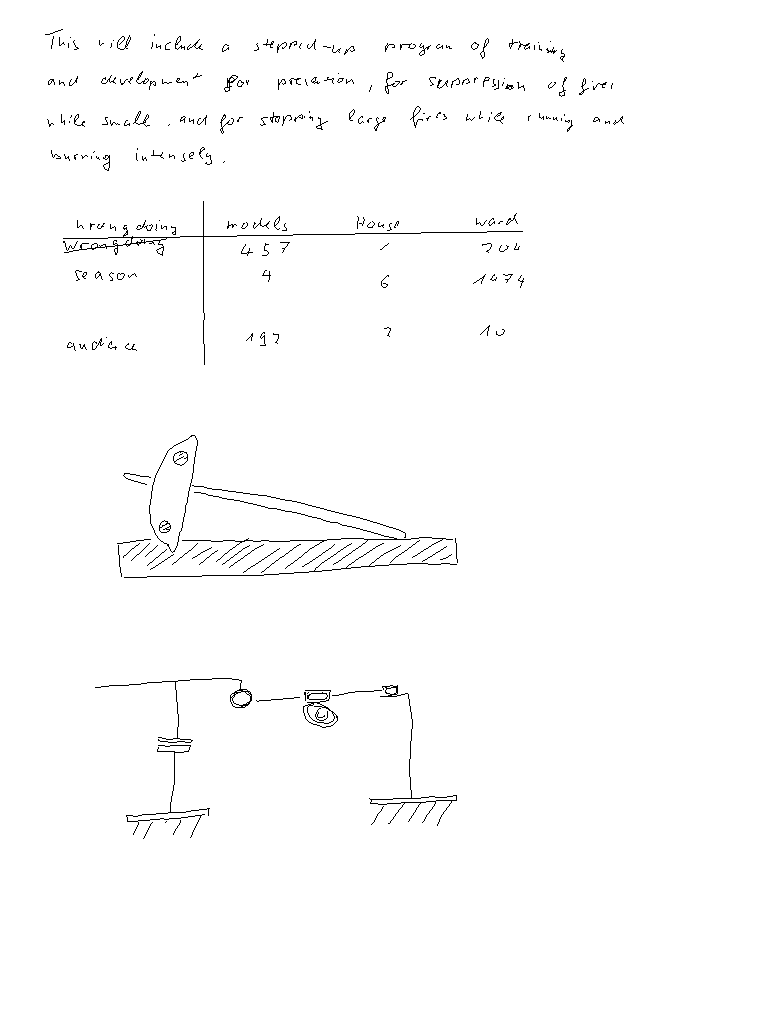 This will include a stepped-up program of training
and development for prevention, for suppression of fires
while small, and for stopping large fires while running and
burning intensely.
wrongdoing models House ward
Wrongdoing 457 1 204
season 4 6 1474
audience 192 2 10